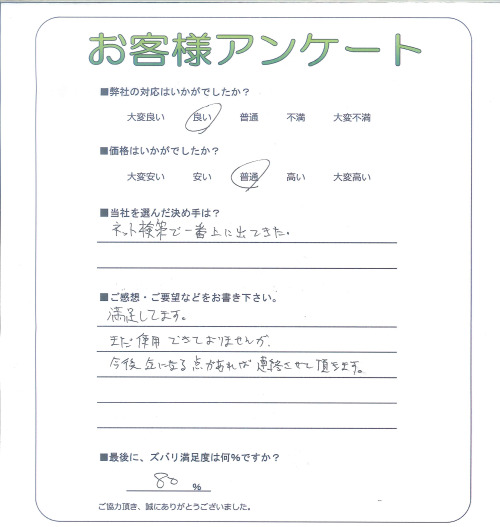 お客様アンケート
■弊社の対応はいかがでしたか？
大変良い 良い 普通 不満 大変不満
■価格はいかがでしたか？
大変安い 安い 普通 高い 大変高い
■当社を選んだ決め手は？
ネット検索で一番上に出てきた。
■ご感想・ご要望などをお書き下さい。
満足してます。
まだ使用できておりませんが、
今後気になる点があれば連絡させて頂きます。
■最後に、ズバリ満足度は何%ですか？
80 %
ご協力頂き、誠にありがとうございました。